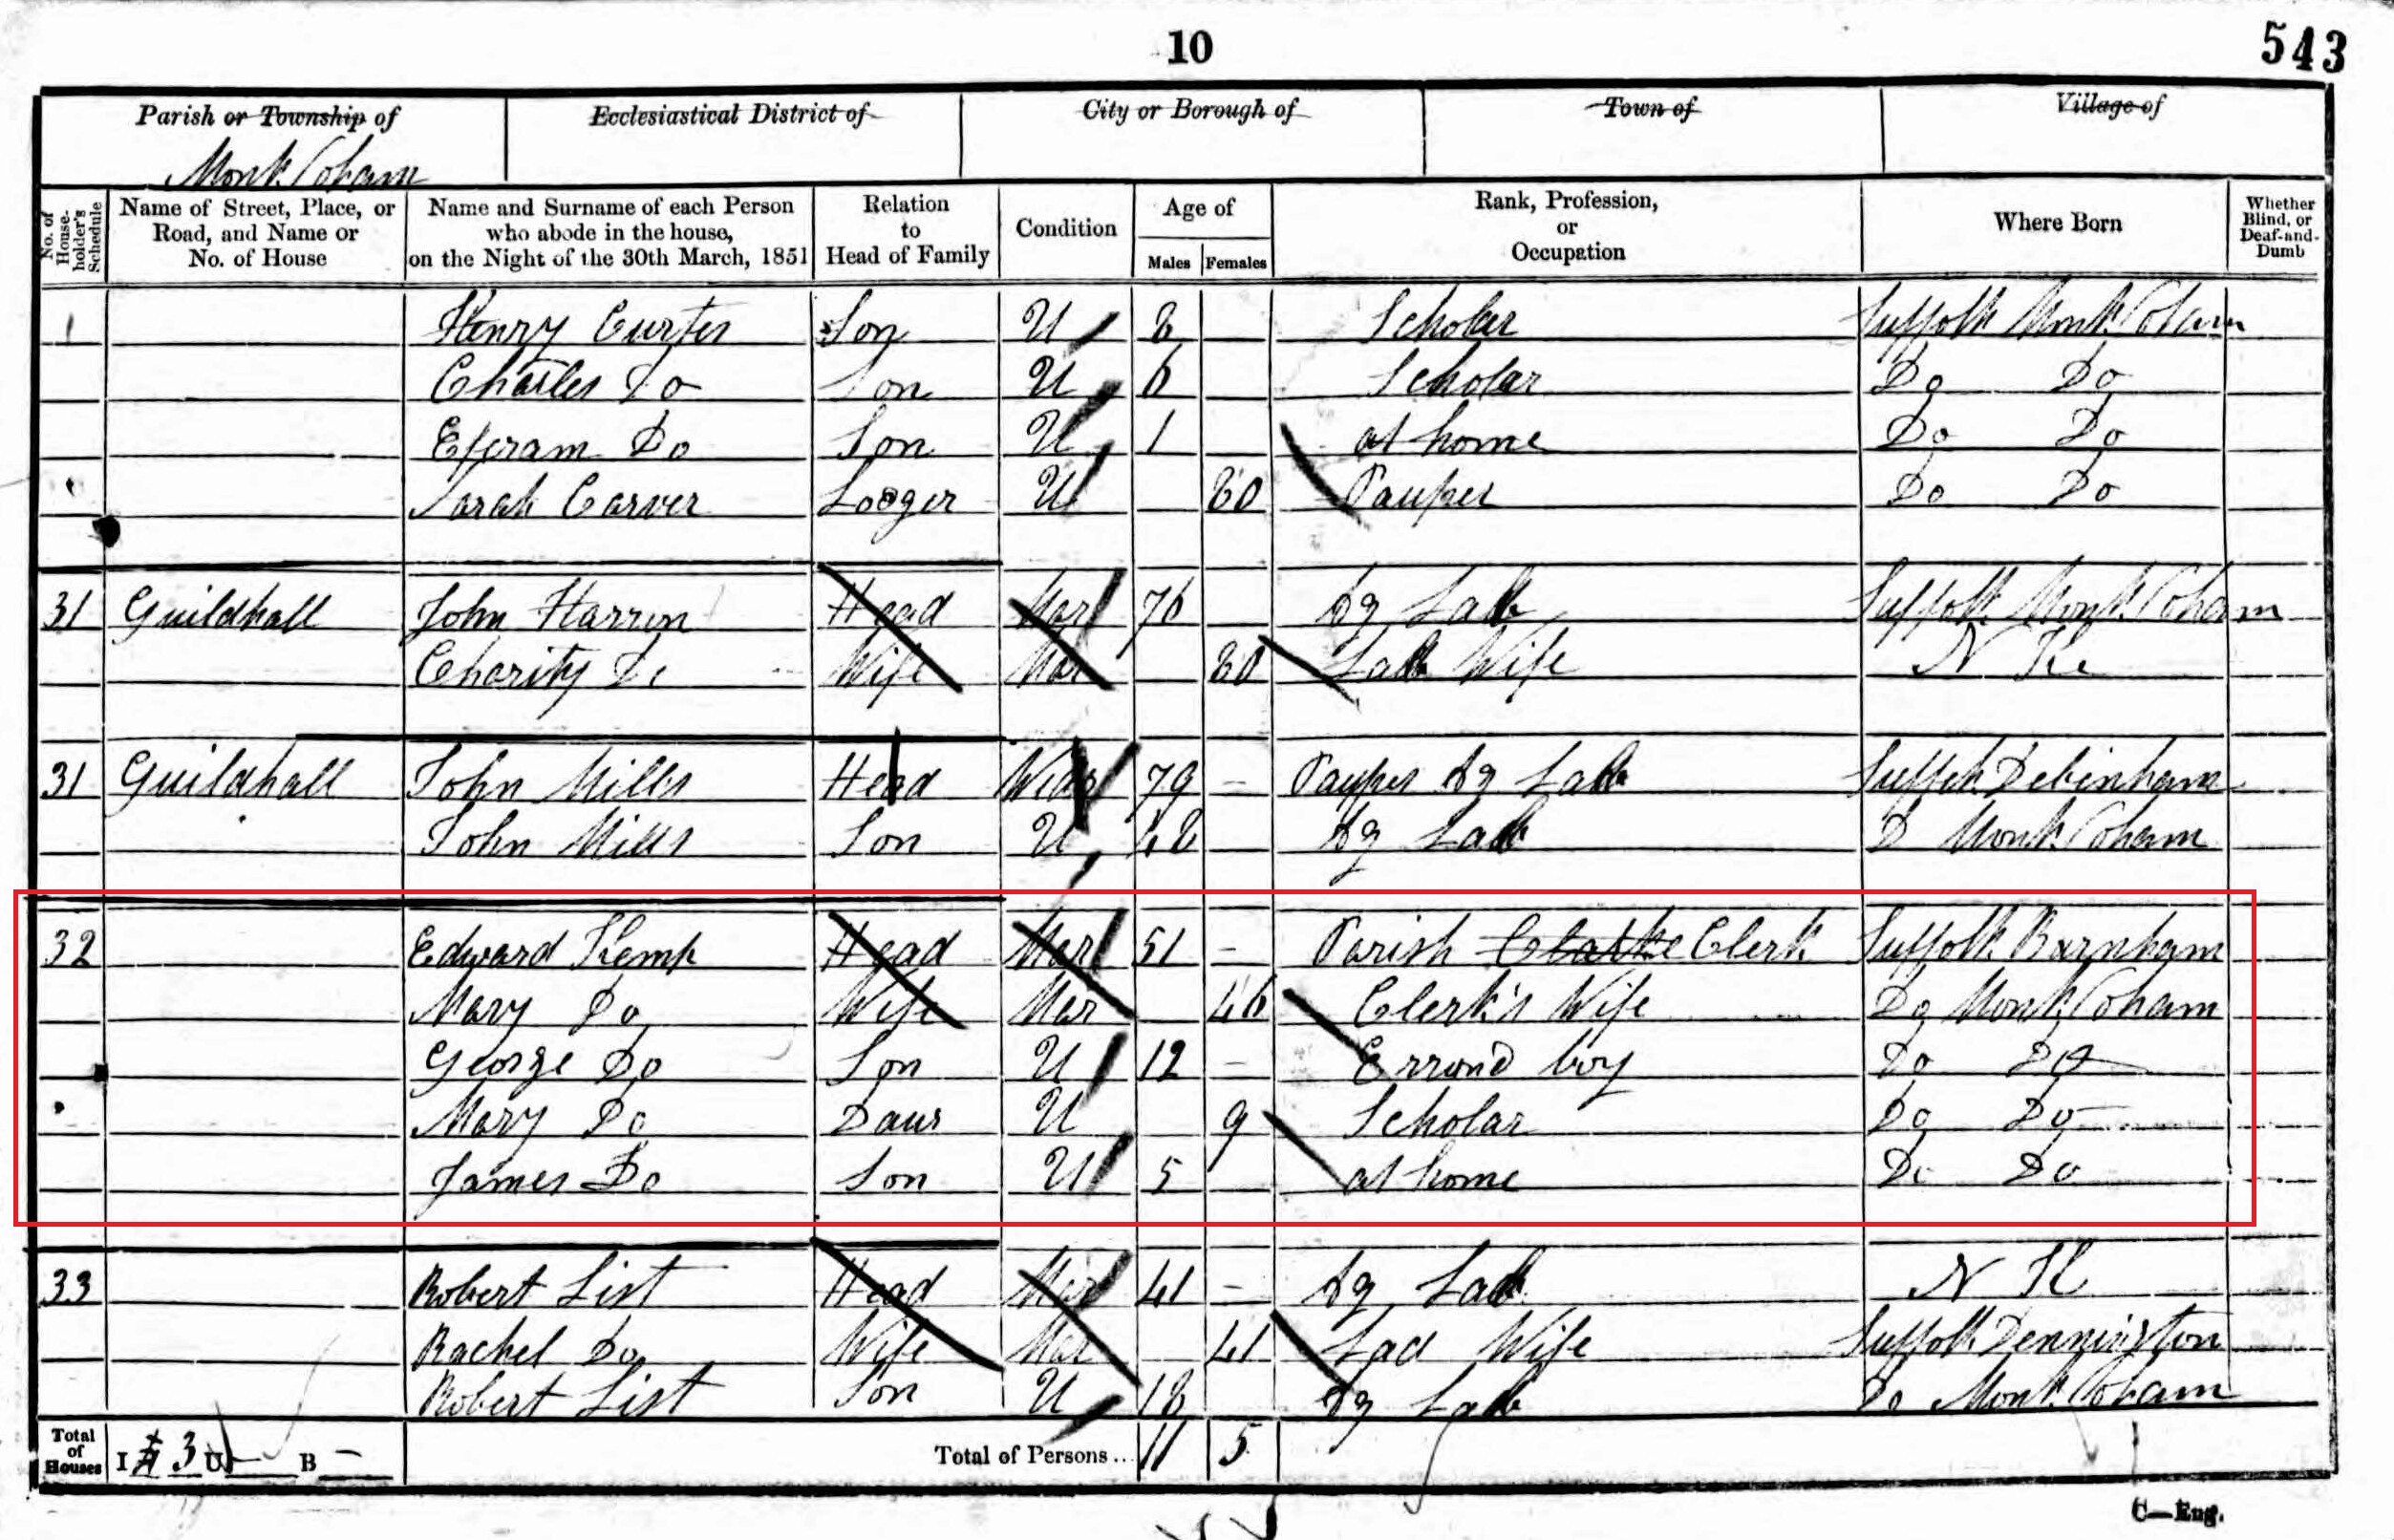 10
543
Parish or Township of
Monk Soham
Ecclesiastical District of
City or Borough of
Town of
Village of
No. of House-holder's Schedule
Name of Street, Place, or Road, and Name or No. of House
Name and Surname of each Person who abode in the house, on the Night of the 30th March, 1851
Relation to Head of Family
Condition
Age of
Males Females
Rank, Profession, or Occupation
Where Born
Whether Blind, or Deaf-and-Dumb
Henry Curtis Son U 8 Scholar Suffolk Monk Soham
Charles Do Son U 6 Scholar Do Do
Efram Do Son U 1 at home Do Do
Sarah Carver Lodger U 80 Pauper Do Do
31 Guildhall John Harren Head Mar 76 Ag Lab Suffolk Monk Soham
Charity Do Wife Mar 80 Lab Wife N K
31 Guildhall John Mills Head Widr 79 - Pauper Ag Lab Suffolk Debinham
John Mills Son U 48 Ag Lab D Monk Soham
32 Edward Kemp Head Mar 51 - Parish Clarke Clerk Suffolk Barnham
Mary Do Wife Mar 46 Clerk's Wife Do Monk Soham
George Do Son U 12 - Errond boy Do Do
Mary Do Daur U 9 Scholar Do Do
James Do Son U 5 at home Do Do
33 Robert List Head Mar 41 - Ag Lab N K
Rachel Do Wife Mar 41 Lab Wife Suffolk Dennington
Robert List Son U 18 Ag Lab Do Monk Soham
Total of Houses I 3 U B - Total of Persons... 11 5
C—Eng.